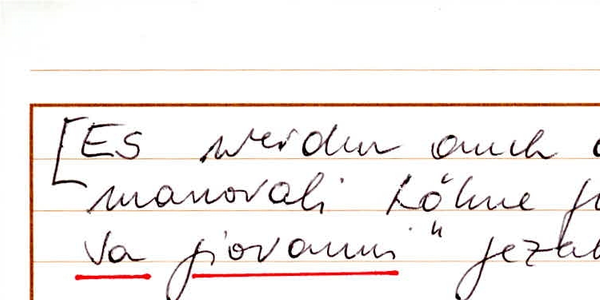 [Es werden auch
manovali Löhne
va giovanni"